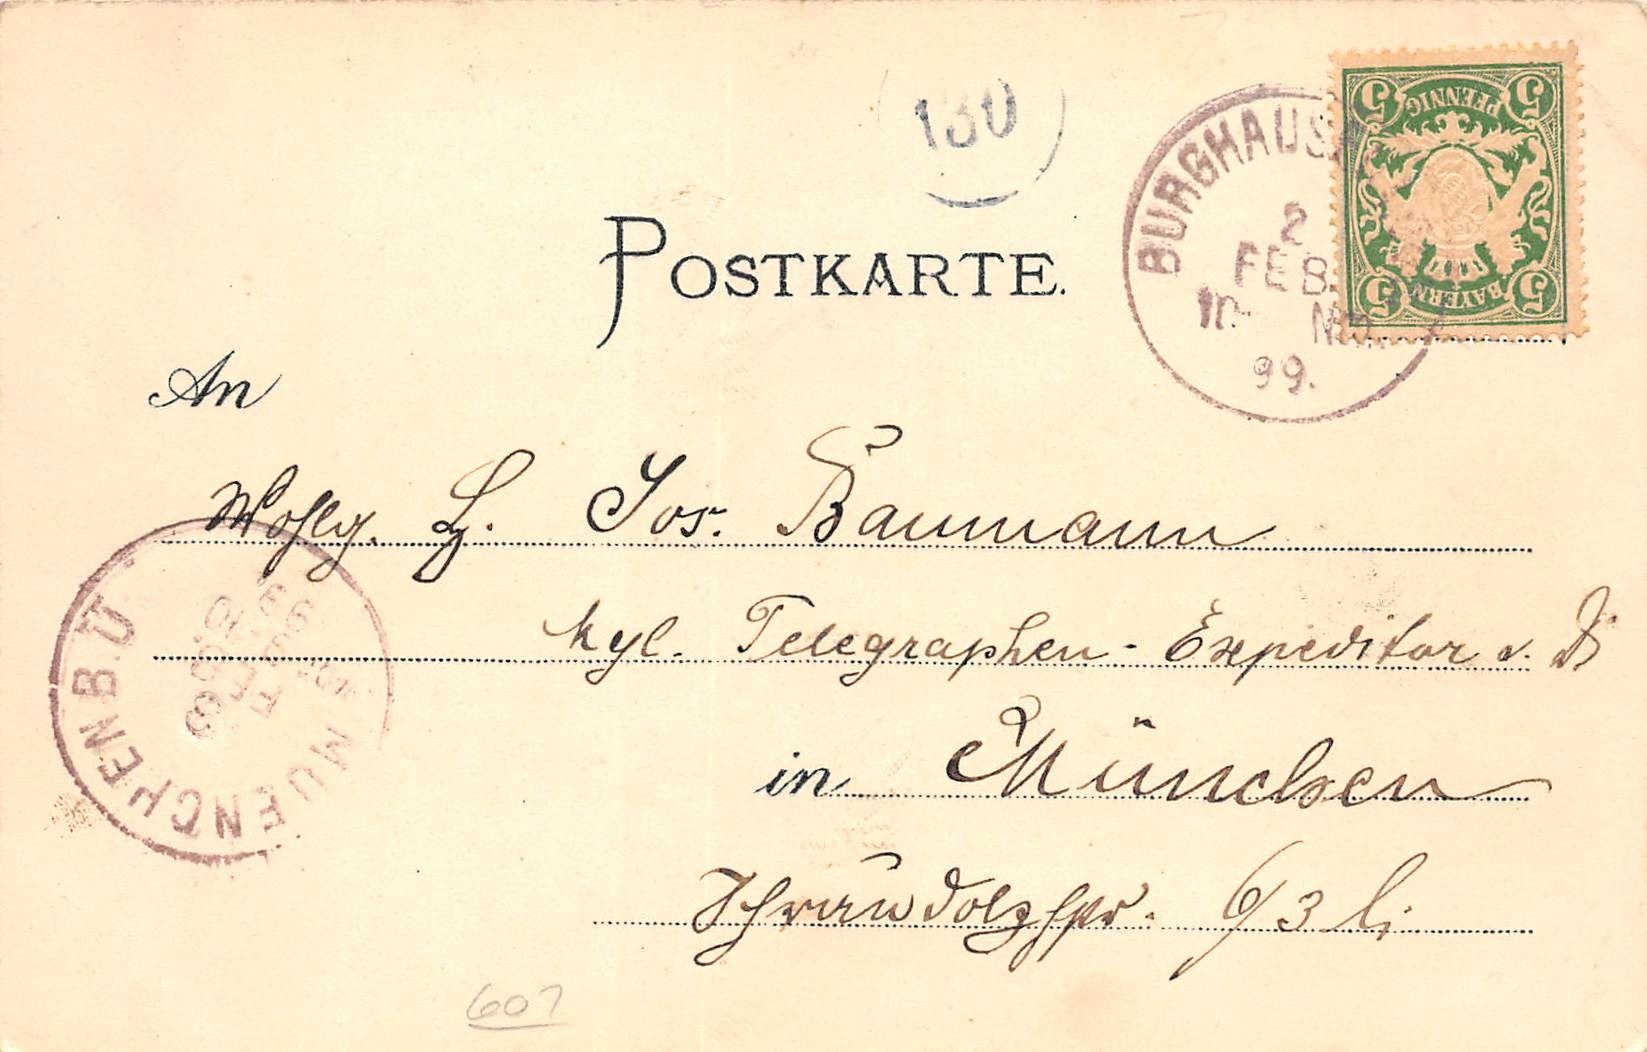 130
BURGHAUS
2
FEB.
10- NM.
99.
5 PFENNIG 5
5 BAYERN 5
POSTKARTE.
An
Wohlg. H. Jos. Baumann
kgl. Telegraphen-Expeditor
in München
Schraudolphstr. 6/3 li
MUENCHEN B.Ü
FEB.
607